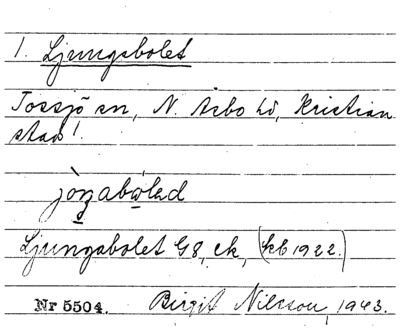 1. Ljungabolet
Tossjö sn, N. Åsbo hd, Kristian
stad l.
Ljungabolet G8, ek, (kb 1922.)
Nr 5504. Birgit Nilsson, 1943.